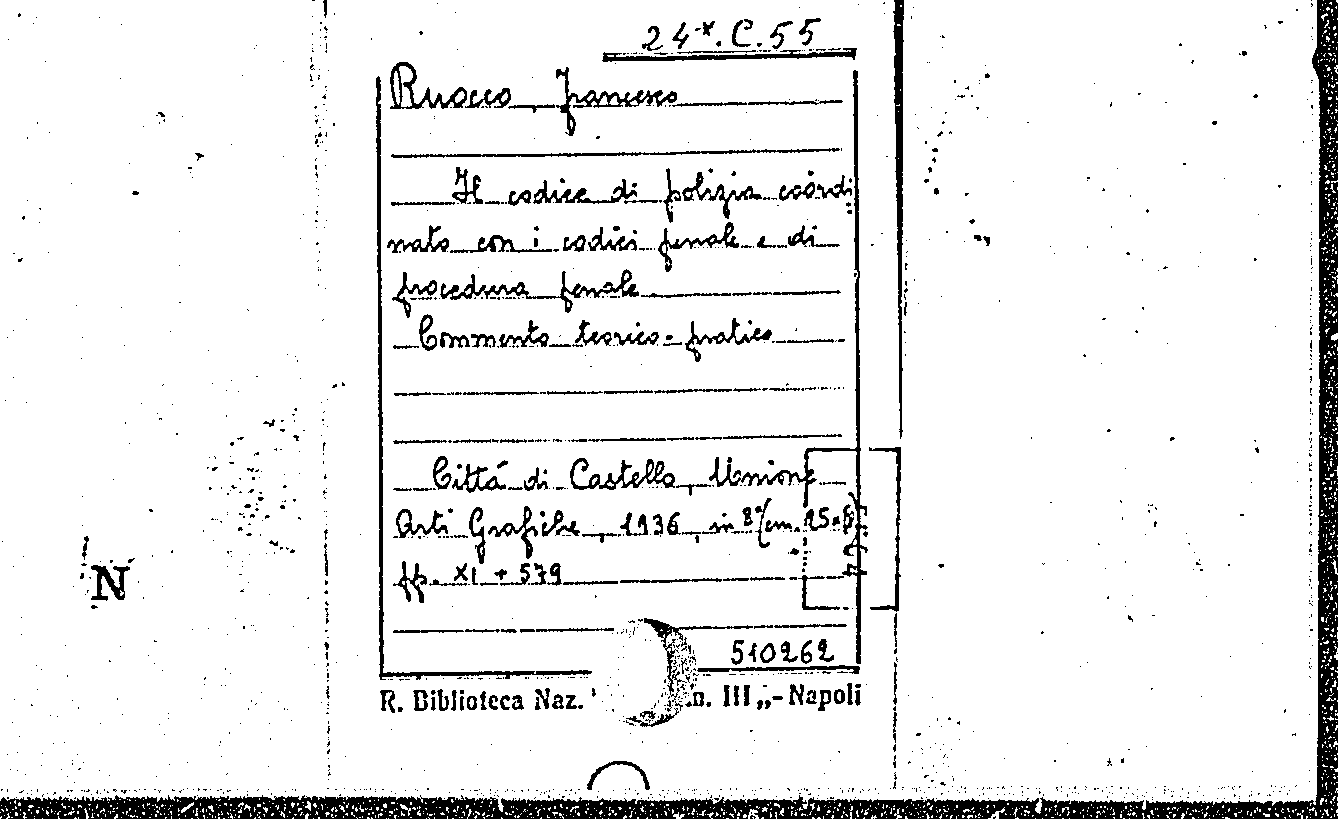 24*. C. 55
Ruocco, Francesco
Il codice di polizia coórdi
nato con i codici penale e di
procedura penale
Commento teorico-pratico
Cittá di Castello, Unione
Arti Grafiche, 1936, in 8° (cm. 25
pp. XI + 579
N
510262
R. Biblioteca Naz. III „- Napoli